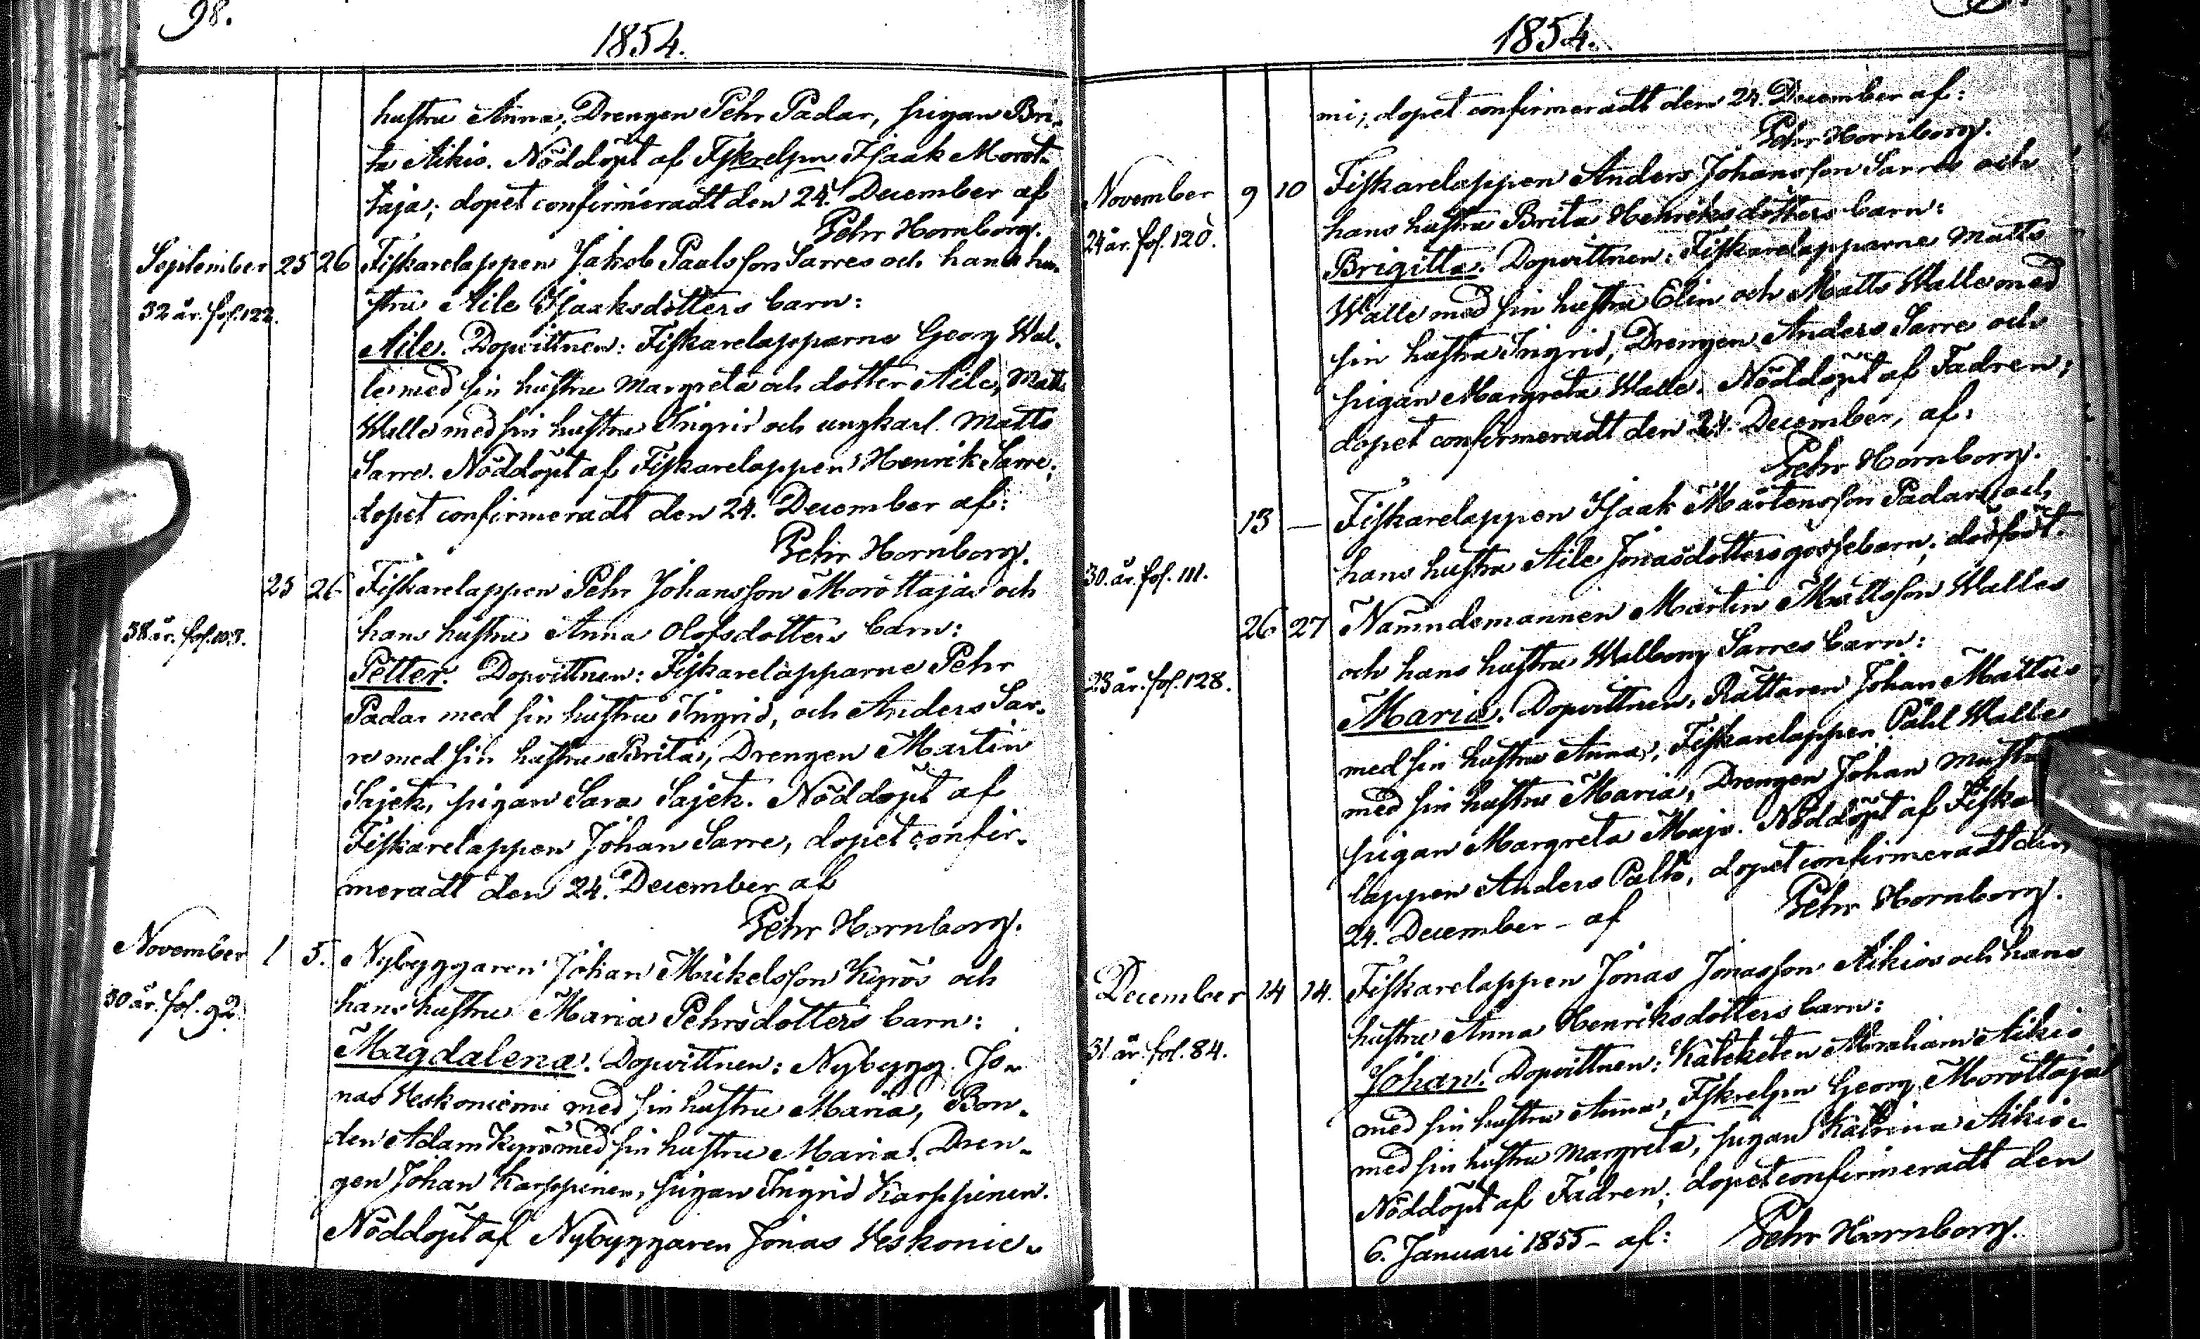 98.
1854.
hustru Anna, Drengen Pehr Padar, pigan Bri-
ta Aikio. Nöddöpt af Fiskrelpn Isaak Morot-
taja; dopet confirmeradt den 24. December af
Pehr Hornborg.
September 25 26 Fiskarelappen Jakob Paulsson Sarres och hans hu-
32 år. fol. 122. stru Aile Isaaksdotters barn:
Aile. Dopvittnen: Fiskarelapparne Georg Wal-
le med sin hustru Margreta och dotter Aile, Matts
Walle med sin hustru Ingrid och ungkarl. Matts
Sarre. Nöddöpt af Fiskarelappen Henrik Sarre;
dopet confirmeradt den 24. December af:
Pehr Hornborg.
25 26 Fiskarelappen Pehr Johansson Morottajas och
38 år. fol. 103. hans hustru Anna Olofsdotters barn:
Petter. Dopvittnen: Fiskarelapparne Pehr
Padar med sin hustru Ingrid, och Anders Sar-
re med sin hustru Brita, Drengen Martin
Sajek, pigan Sara Sajek. Nöddöpt af
Fiskarelappen Johan Sarre, dopet confir-
meradt den 24. December af
Pehr Hornborg.
November 1 5. Nybyggaren Johan Mickelsson Kyrös och
30 år. fol. 92. hans hustru Maria Pehrsdotters barn:
Magdalena. Dopvittnen: Nybygg. Jo-
nas Heskoniemi med sin hustru Maria, Bon-
den Adam Kyrö med sin hustru Maria. Dren-
gen Johan Karppinen, pigan Ingrid Karppinen.
Nöddöpt af Nybyggaren Jonas Heskonie-
1854.
mi; dopet confirmeradt den 24. December af:
Pehr Hornborg.
November 9 10 Fiskarelappen Anders Johansson Sarres och
24 år. fol. 120. hans hustru Brita Henriksdotters barn:
Brigitta. Dopvittnen: Fiskarelapparne Matts
Walle med sin hustru Elin och Matts Walle med
sin hustru Ingrid, Drengen Anders Sarre och
pigan Margreta Walle. Nöddöpt af Fadren;
dopet confirmeradt den 24. December, af:
Pehr Hornborg.
13 — Fiskarelappen Isaak Mårtensson Padars och
30. år. fol. 111. hans hustru Aile Jonasdotters gossebarn; dödfödt.
26 27 Nämndemannen Martin Mattsson Walles
23 år. fol. 128. och hans hustru Walborg Sarres barn:
Maria. Dopvittnen, Rättaren Johan Mattus
med sin hustru Anna, Fiskarelappen Påhl Walle
med sin hustru Maria, Drengen Johan
pigan Margreta Majo. Nöddöpt af Fiska
lappen Anders Palto, dopet confirmeradt den
24. December - af Pehr Hornborg.
December 14 14. Fiskarelappen Jonas Jonasson Aikios och hans
31 år. fol. 84. hustru Anna Henriksdotters barn:
Johan. Dopvittnen: Kateketen Abraham Aikio
med sin hustru Anna, Fiskrelpn Georg Morottaja
med sin hustru Margreta, pigan Katrina Aikio.
Nöddöpt af Fadren; dopet confirmeradt den
6. Januari 1855 - af: Pehr Hornborg.